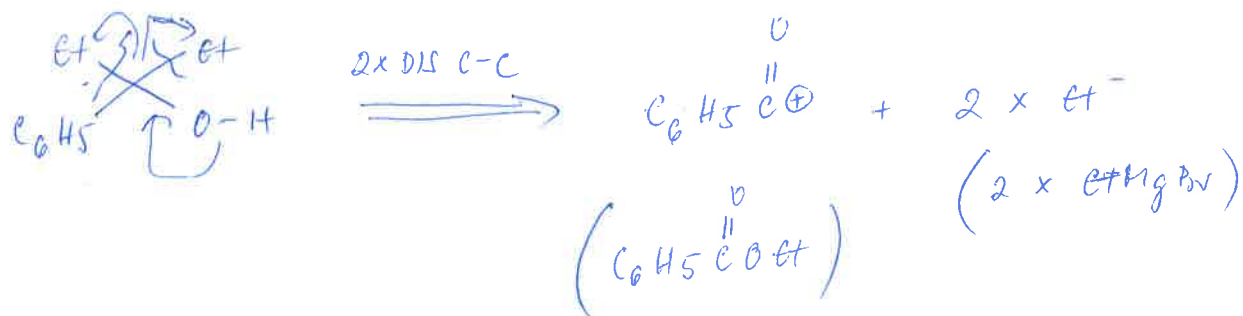 Et Et
C6H5 O-H
2x DIS C-C
O
||
C6H5 C⊕ + 2 x Et⁻
(2 x EtMgBr)
O
||
(C6H5 C O Et)